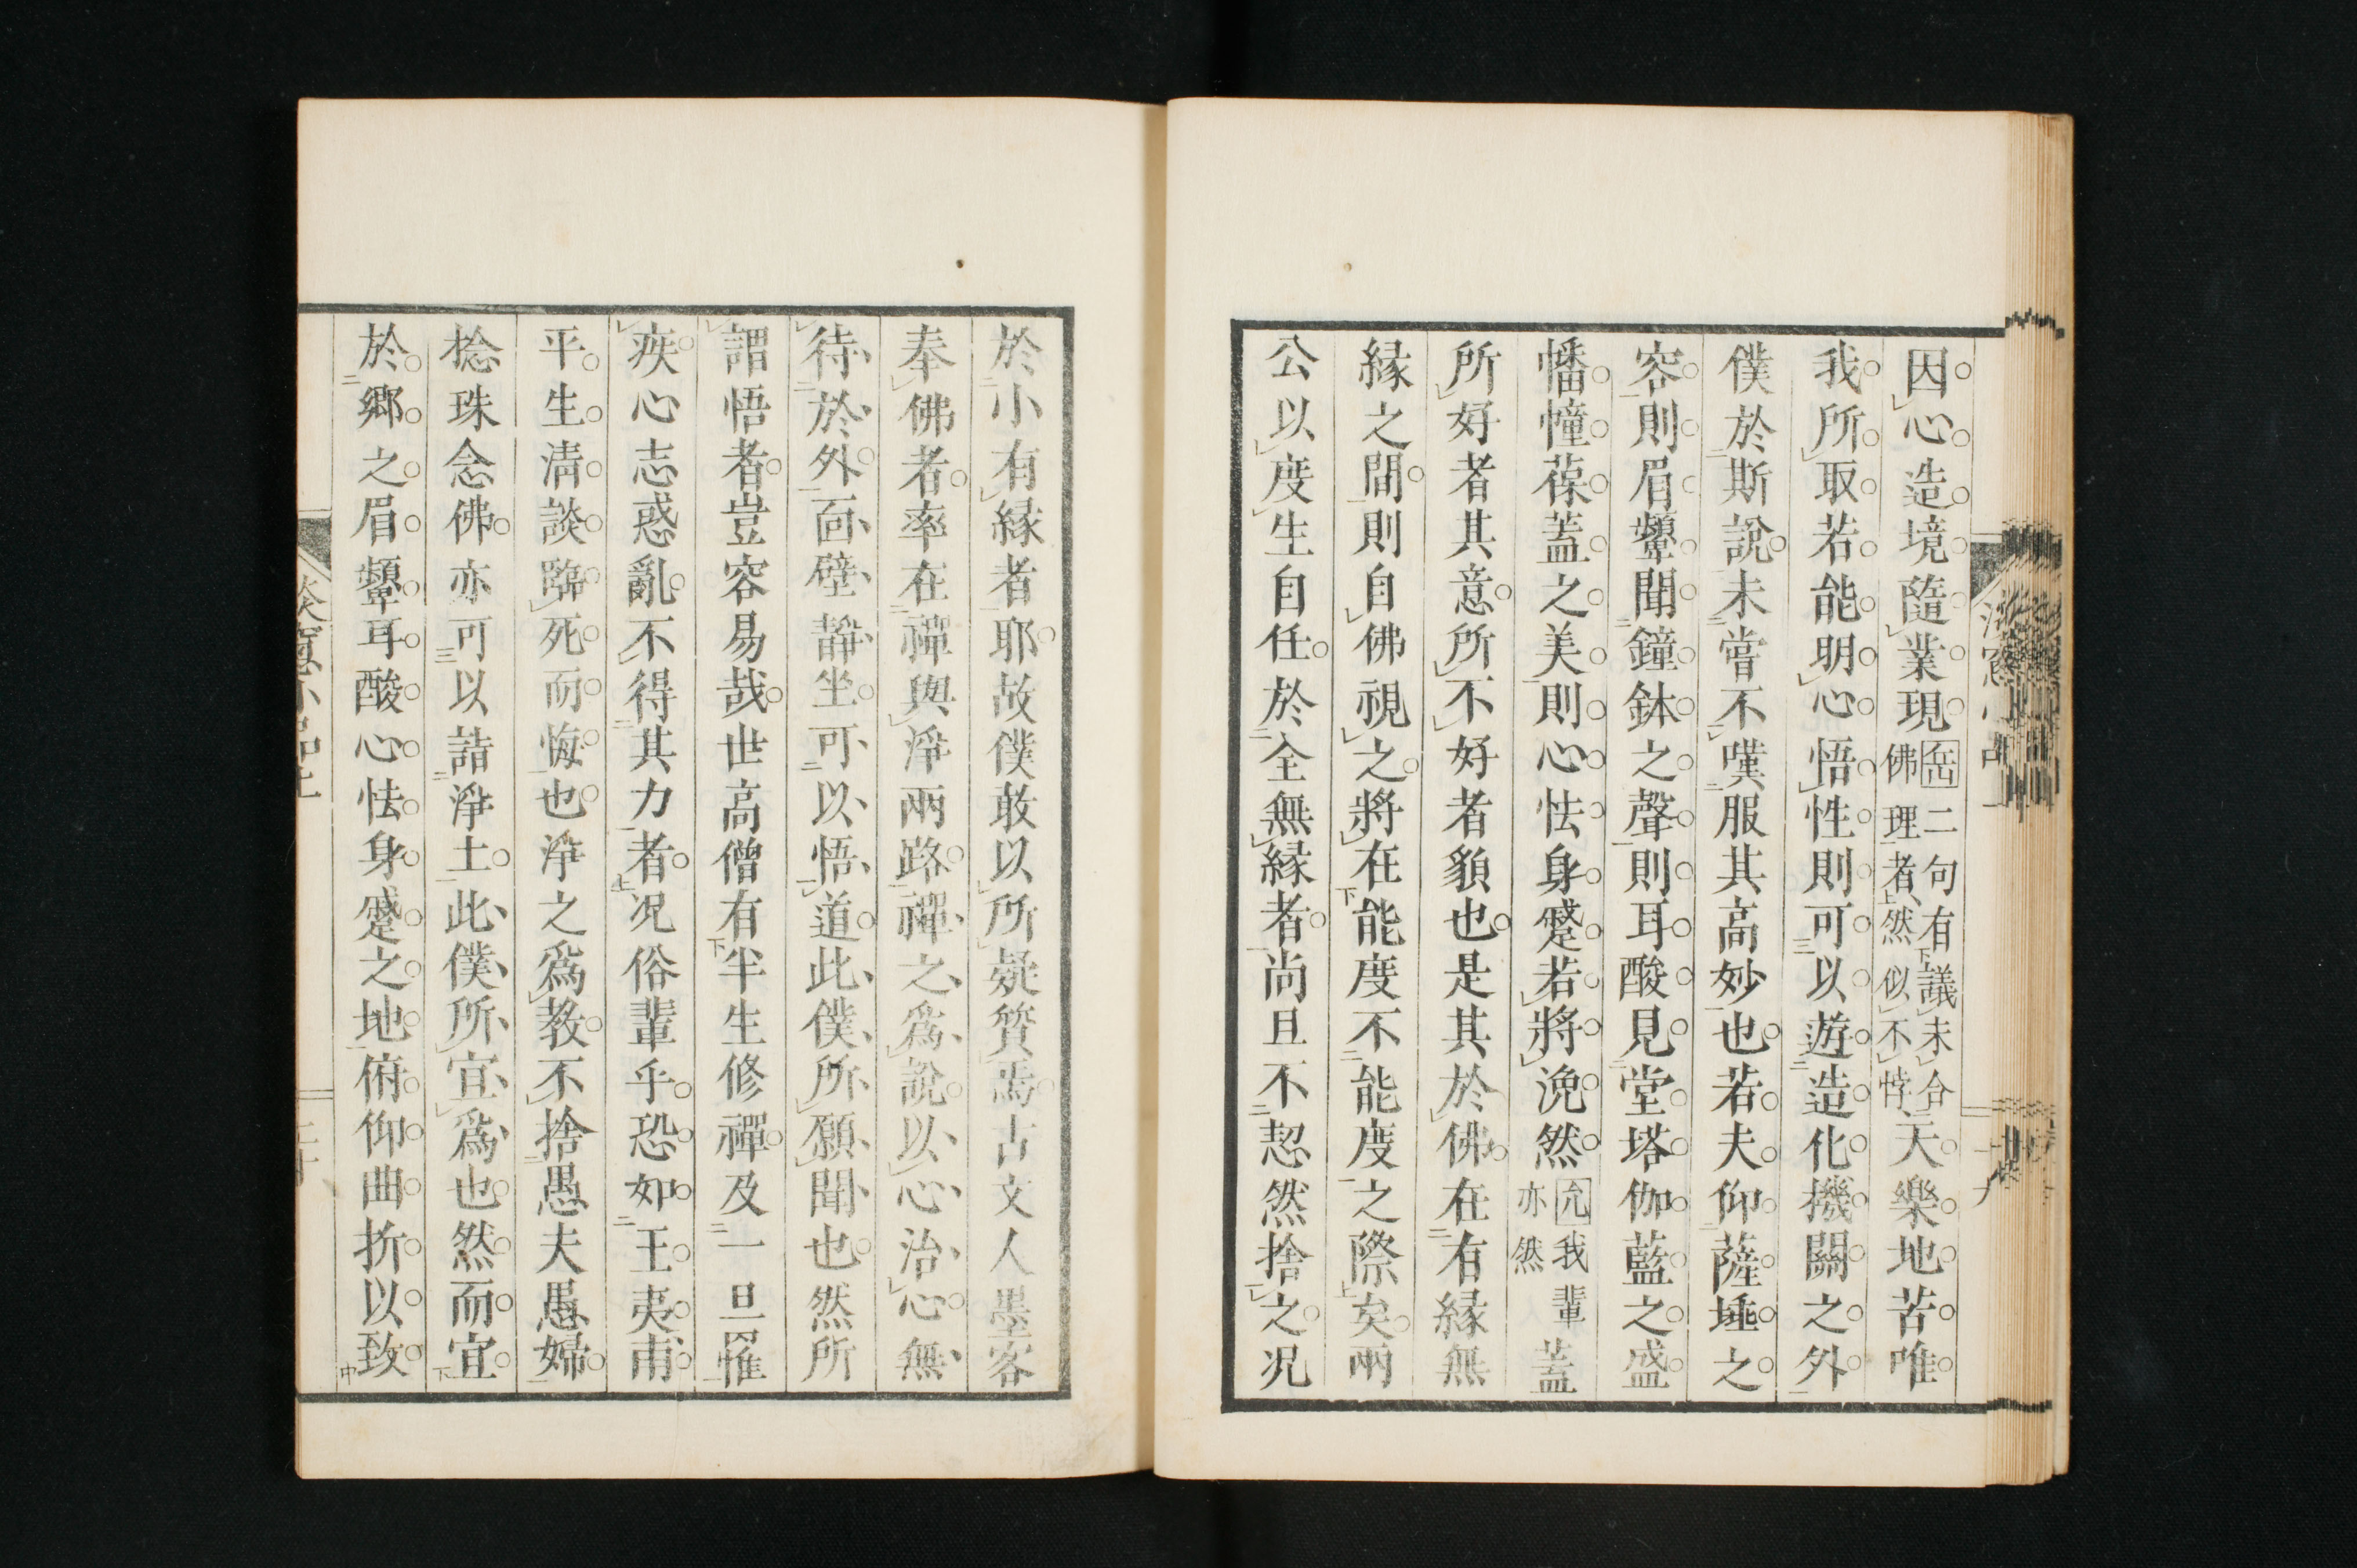 因心造境隨業現岳二句有議未合佛理者然似不悖天樂地苦唯
我所取若能明心悟性則可以遊造化機關之外
僕於斯說未嘗不嘆服其高妙也若夫仰薩埵之
容則眉顰聞鐘鉢之聲則耳酸見堂塔伽藍之盛
幡幢葆蓋之美則心怯身蹙若將浼然允我輩亦然蓋
所好者其意所不好者貌也是其於佛在有緣無
緣之間則自佛視之將在能度不能度之際矣兩
公以度生自任於全無緣者尚且不恝然捨之況
於小有緣者耶故僕敢以所疑質焉古文人墨客
奉佛者率在禪與淨兩路禪之爲說以心治心無
待於外面壁靜坐可以悟道此僕所願聞也然所
謂悟者豈容易哉世高僧有半生修禪及一旦罹
疾心志惑亂不得其力者況俗輩乎恐如王夷甫
平生淸談臨死而悔也淨之爲敎不捨愚夫愚婦
捻珠念佛亦可以詣淨土此僕所宜爲也然而宜
於鄉之眉顰耳酸心怯身蹙之地俯仰曲折以致